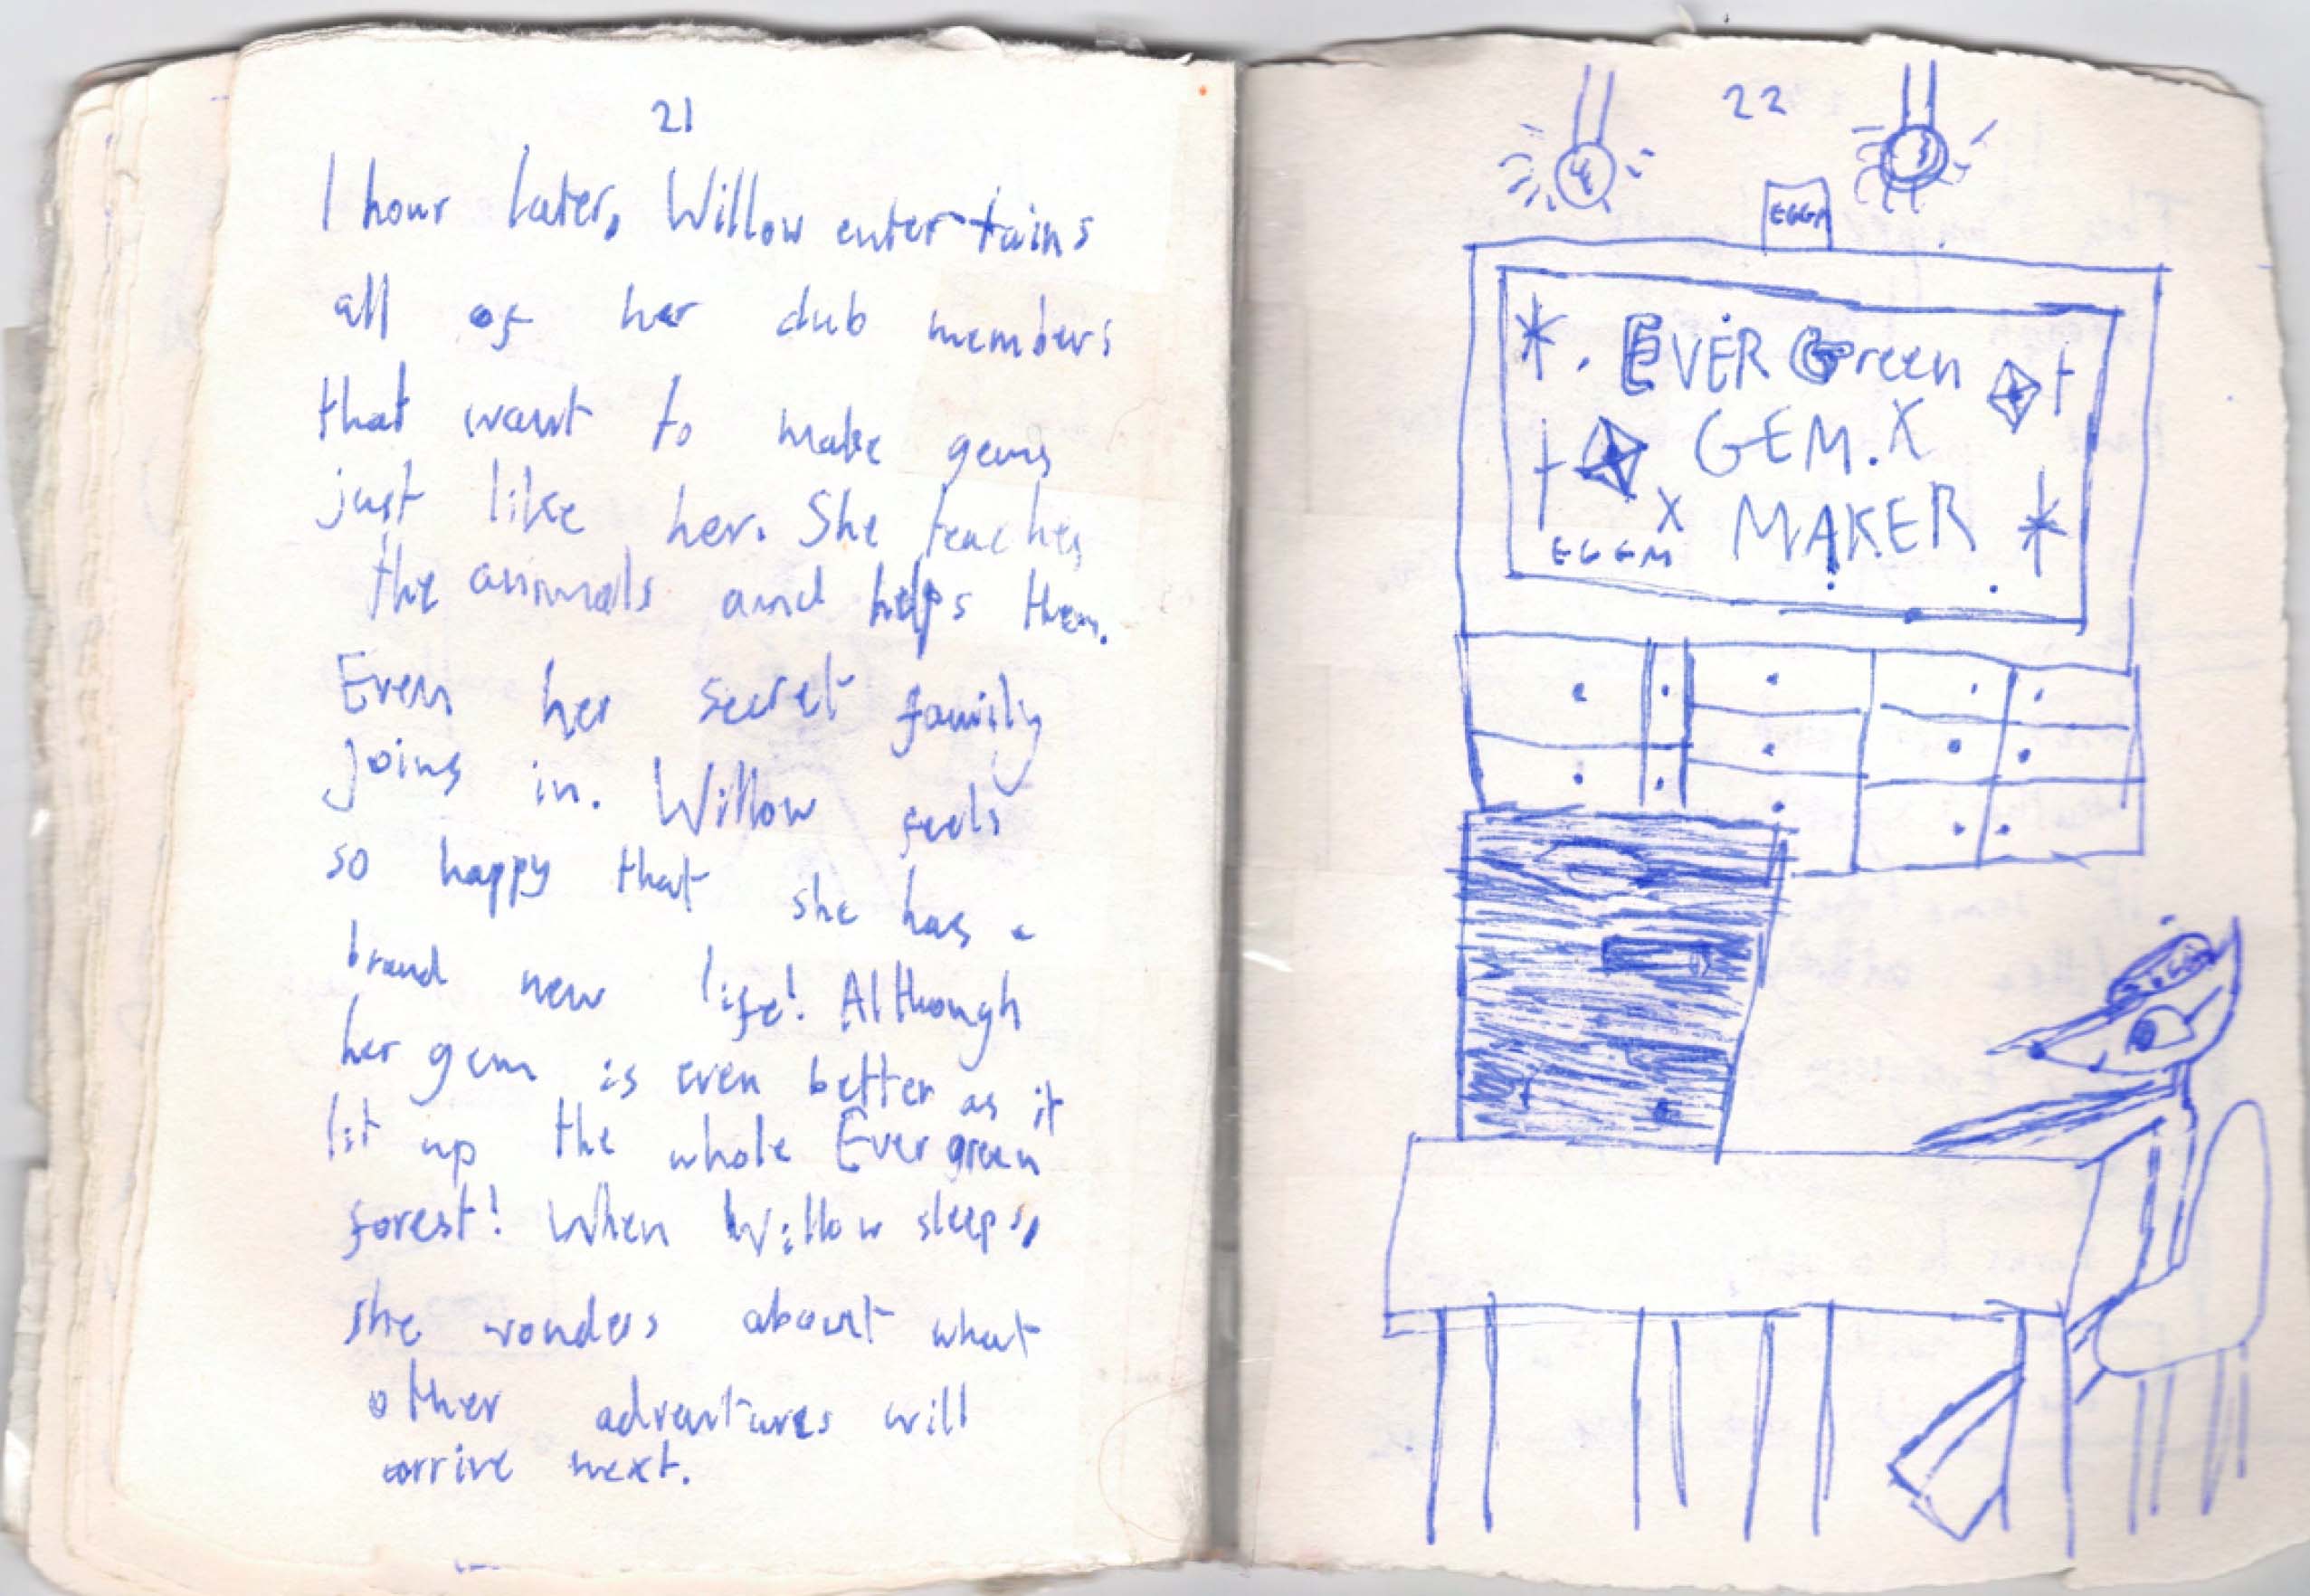 21
1 hour later, Willow entertains
all of her club members
that want to make gems
just like her. She teaches
the animals and helps them.
Even her secret family
joins in. Willow feels
so happy that she has a
brand new life! Although
her gem is even better as it
lit up the whole Evergreen
forest! When Willow sleeps,
she wonders about what
other adventures will
arrive next.
22
EGGM
EVER Green
GEM.X
X MAKER
EGGM